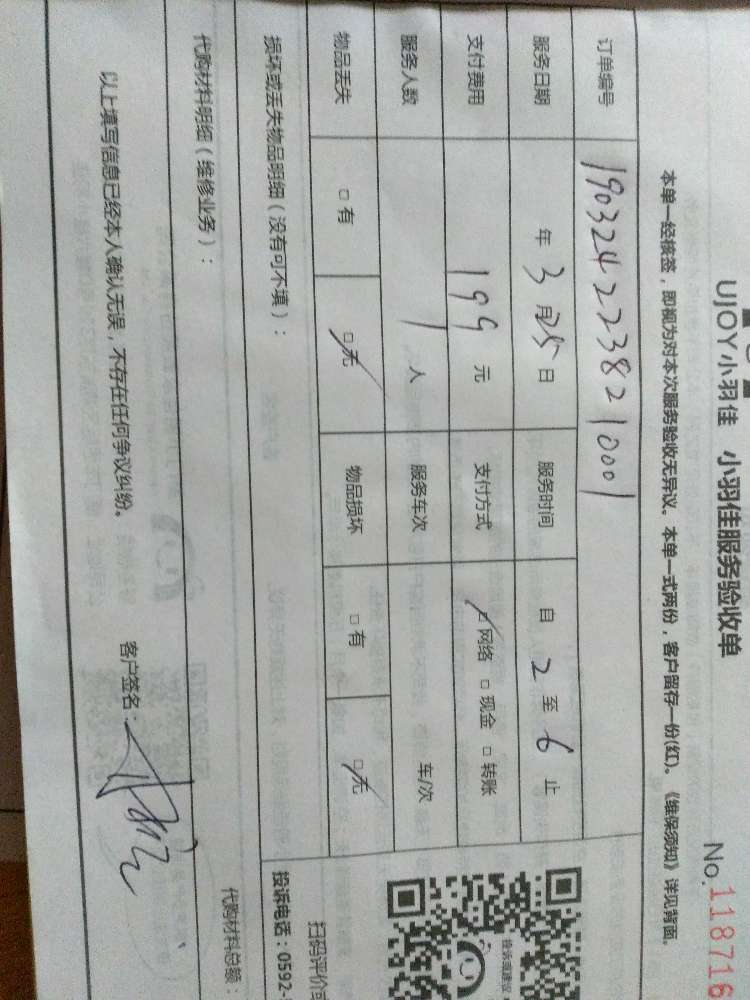 UJOY小羽佳 小羽佳服务验收单
No.118716
本单一经核签，即视为对本次服务验收无异议。本单一式两份，客户留存一份(红)。《维保须知》详见背面。
订单编号 1903242238210001
服务日期 年 3 月 25 日 服务时间 自 2 至 6 止
支付费用 199 元 支付方式 □网络 □现金 □转账
服务人数 1 人 服务车次 车/次
物品丢失 □有 □无 物品损坏 □有 □无
损坏或丢失物品明细（没有可不填）：
代购材料明细（维修业务）：
代购材料总额：
以上填写信息已经本人确认无误，不存在任何争议纠纷。 客户签名：
扫码评价
投诉电话：0592-